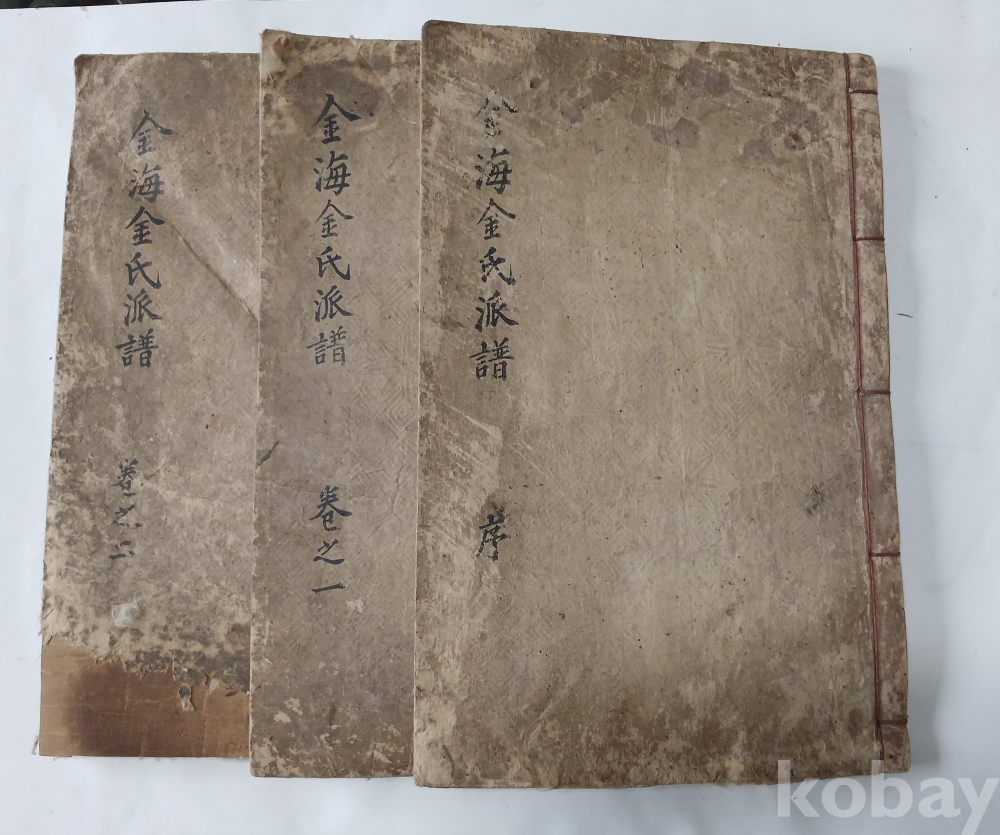 金海金氏派譜
序
金海金氏派譜
卷之一
金海金氏派譜
卷之二
kobay